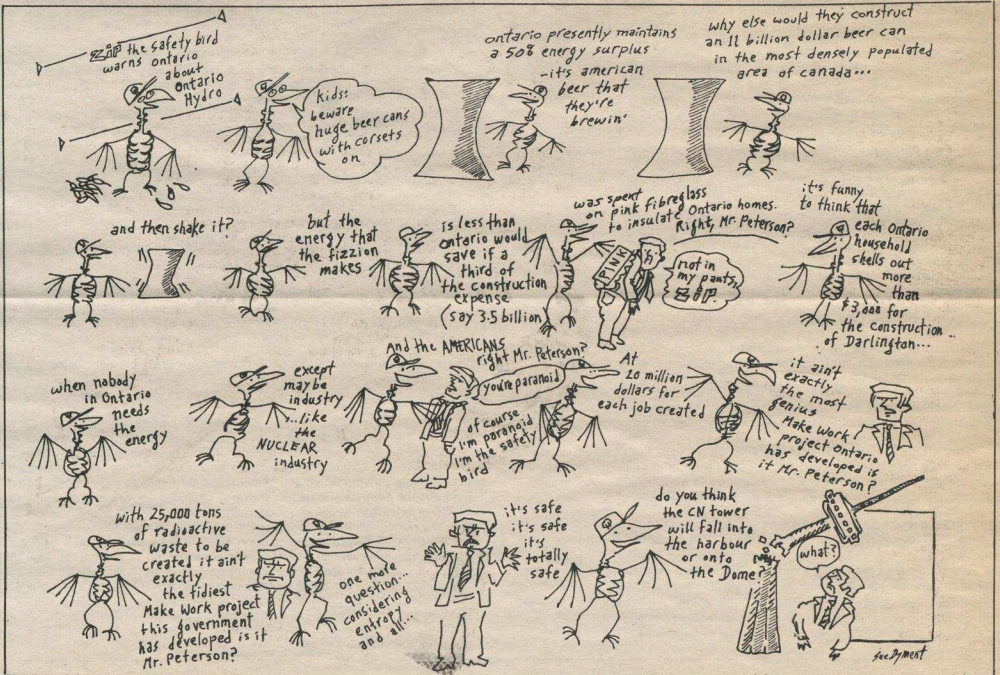 ZiP the safety bird
warns ontario
about
Ontario
Hydro
kids:
beware
huge beer cans
with corsets
on
ontario presently maintains
a 50% energy surplus
-it's american
beer that
they're
brewin'
why else would they construct
an 11 billion dollar beer can
in the most densely populated
area of canada...
and then shake it?
but the
energy that
the fizzion
makes
is less than
ontario would
save if a
third of
the construction
expense
(say 3.5 billion)
was spent
on pink fibreglass
to insulate Ontario homes.
Right, Mr. Peterson?
PINK
not in
my pants,
ZiP.
it's funny
to think that
each Ontario
household
shells out
more
than
$3,000 for
the construction
of Darlington...
when nobody
in Ontario
needs
the
energy
except
maybe
industry
...like
the
NUCLEAR
industry
And the AMERICANS
right Mr. Peterson?
you're paranoid
of course
I'm paranoid
I'm the safety
bird
At
20 million
dollars for
each job created
it ain't
exactly
the most
genius
Make Work
project Ontario
has developed is
it Mr. Peterson?
with 25,000 tons
of radioactive
waste to be
created it ain't
exactly
the tidiest
Make Work project
this government
has developed is it
Mr. Peterson?
one more
question...
considering
entropy
and all...
it's safe
it's safe
it's
totally
safe
do you think
the CN tower
will fall into
the harbour
or onto
the Dome?
what?
Sue Dyment